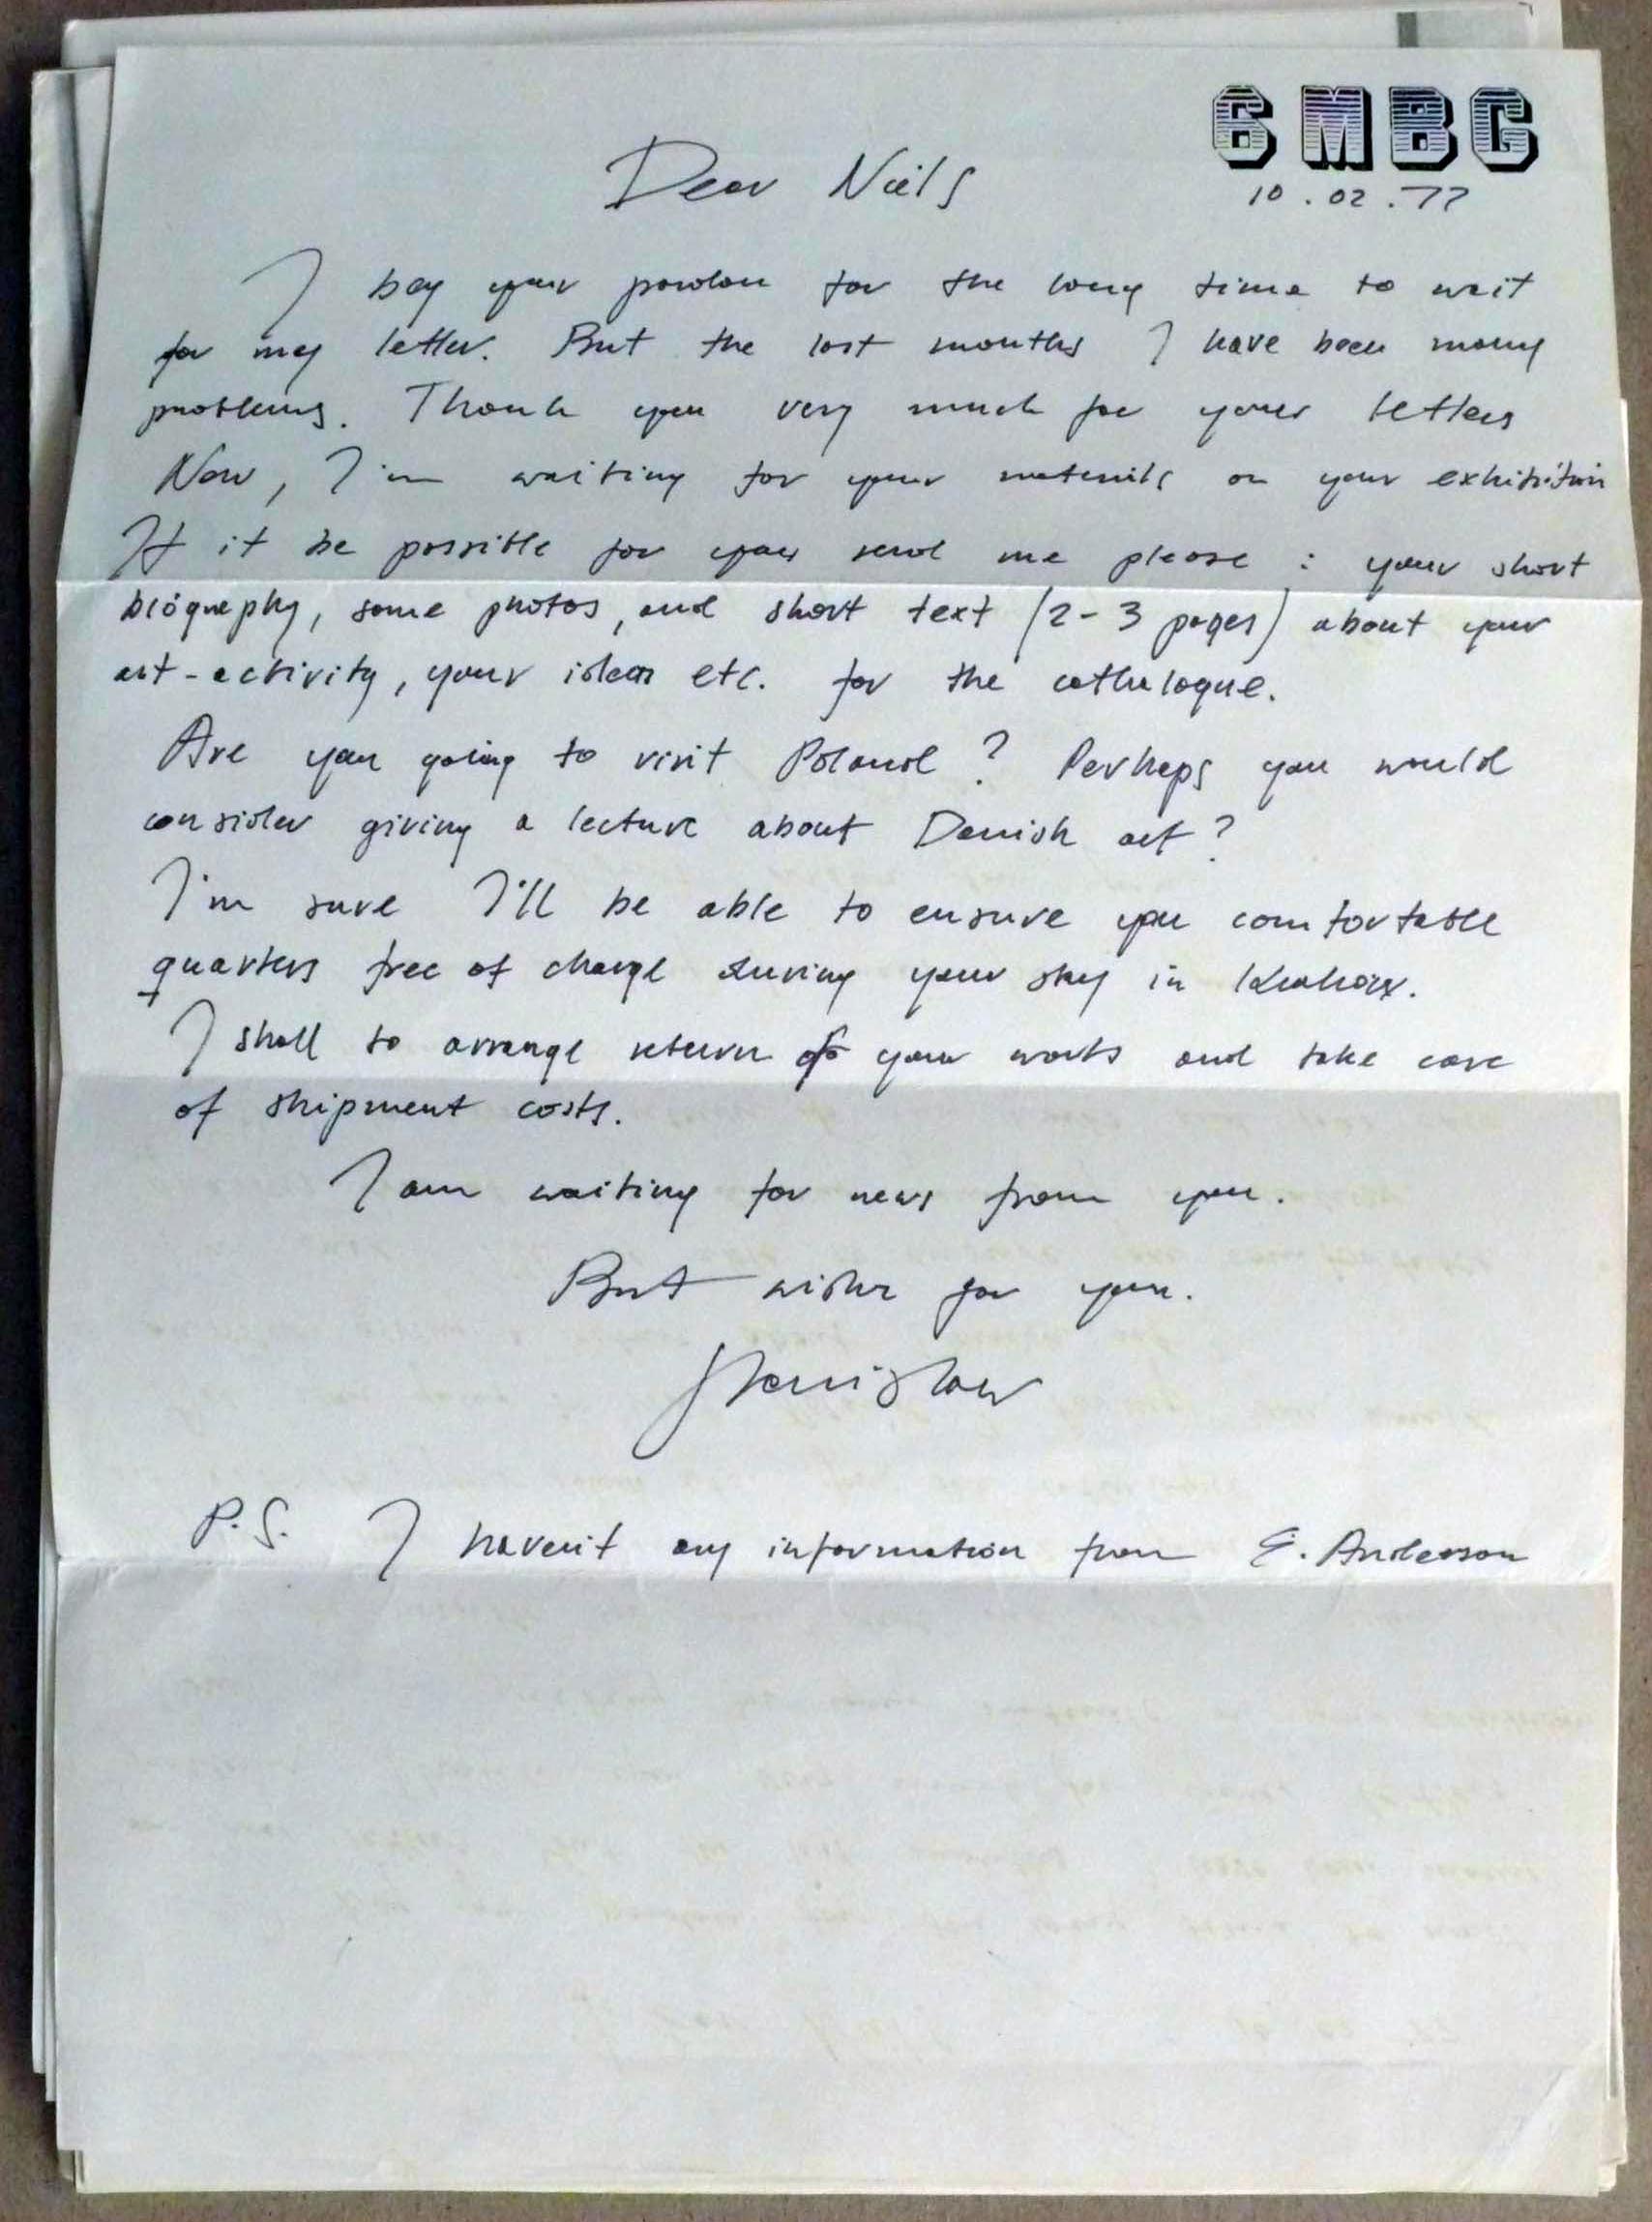 6 MBG
10.02.77
Dear Niels
I beg your pardon for the long time to wait
for my letter. But the last months I have been many
problems. Thank you very much for your letters
Now, I'm waiting for your materials on your exhibition
If it be possible for you send me please : your short
biography, some photos, and short text (2-3 pages) about your
art-activity, your ideas etc. for the cathalogue.
Are you going to visit Poland ? Perhaps you would
consider giving a lecture about Danish art ?
I'm sure I'll be able to ensure you comfortable
quarters free of charge during your stay in Kraków.
I shall to arrange return of your works and take care
of shipment costs.
I am waiting for news from you.
Best wishes for you.
Stanislaw
P.S. I haven't any information from E. Anderson